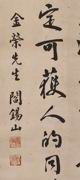 定可獲人的同
金榮先生 閻錫山